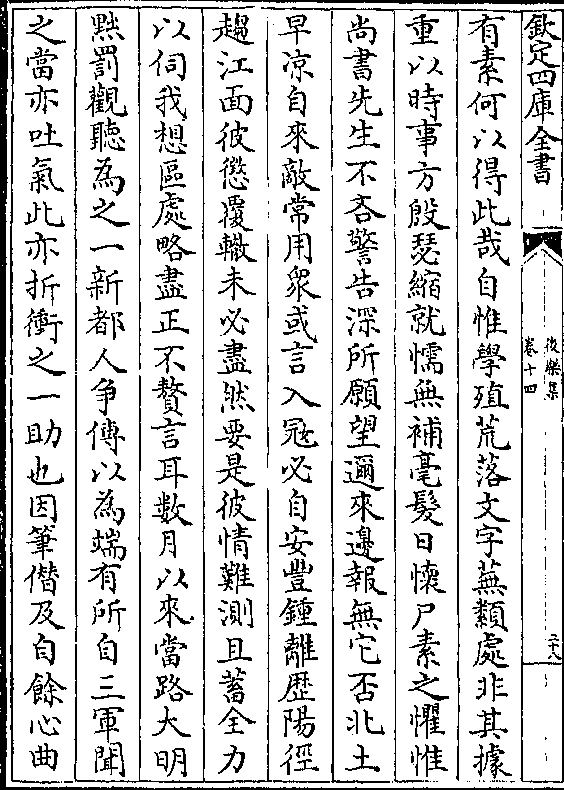 欽定四庫全書
後樂集
卷十四
二十八
有素何以得此哉自惟學殖荒落文字蕪纇處非其據
重以時事方殷瑟縮就懦無補毫髮日懷尸素之懼惟
尚書先生不吝警告深所願望邇來邊報無它否北土
早凉自來敵常用衆或言入冦必自安豐鍾離歴陽徑
趨江面彼懲覆轍未必盡然要是彼情難測且蓄全力
以伺我想區處略盡正不贅言耳數月以來當路大明
黙罰觀聽為之一新都人争傳以為端有所自三軍聞
之當亦吐氣此亦折衝之一助也因筆僭及自餘心曲